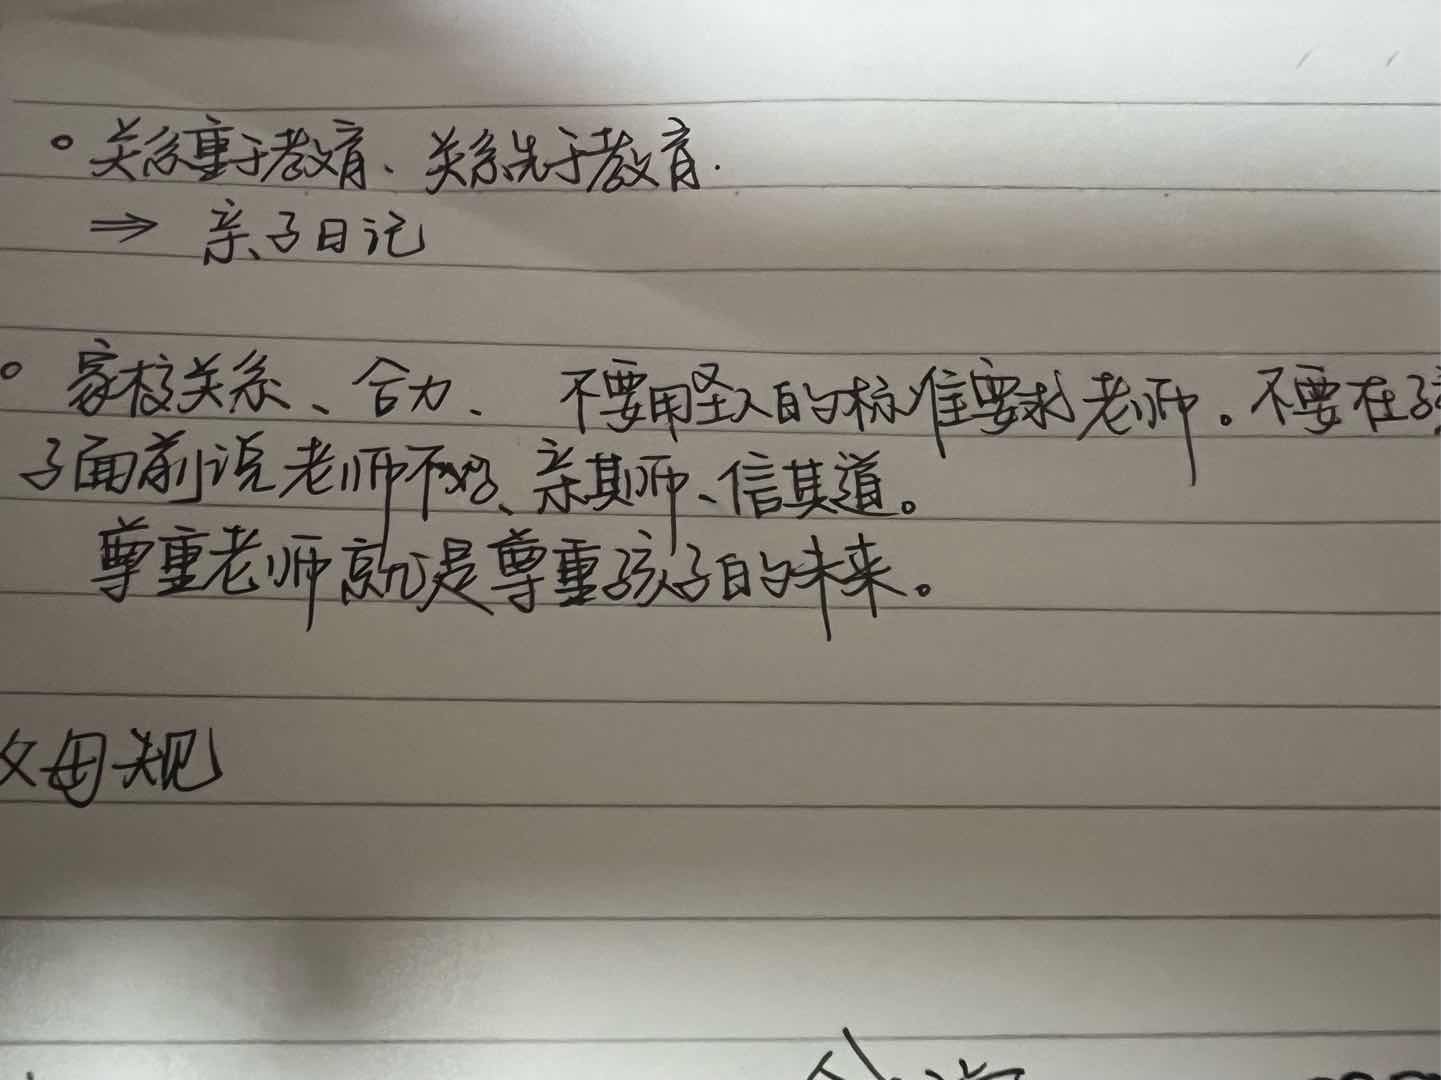 。关系重于教育、关系先于教育.
⇒ 亲子日记
。家校关系、合力、不要用圣人的标准要求老师。不要在孩
子面前说老师不好、亲其师、信其道。
尊重老师就是尊重孩子的未来。
父母规